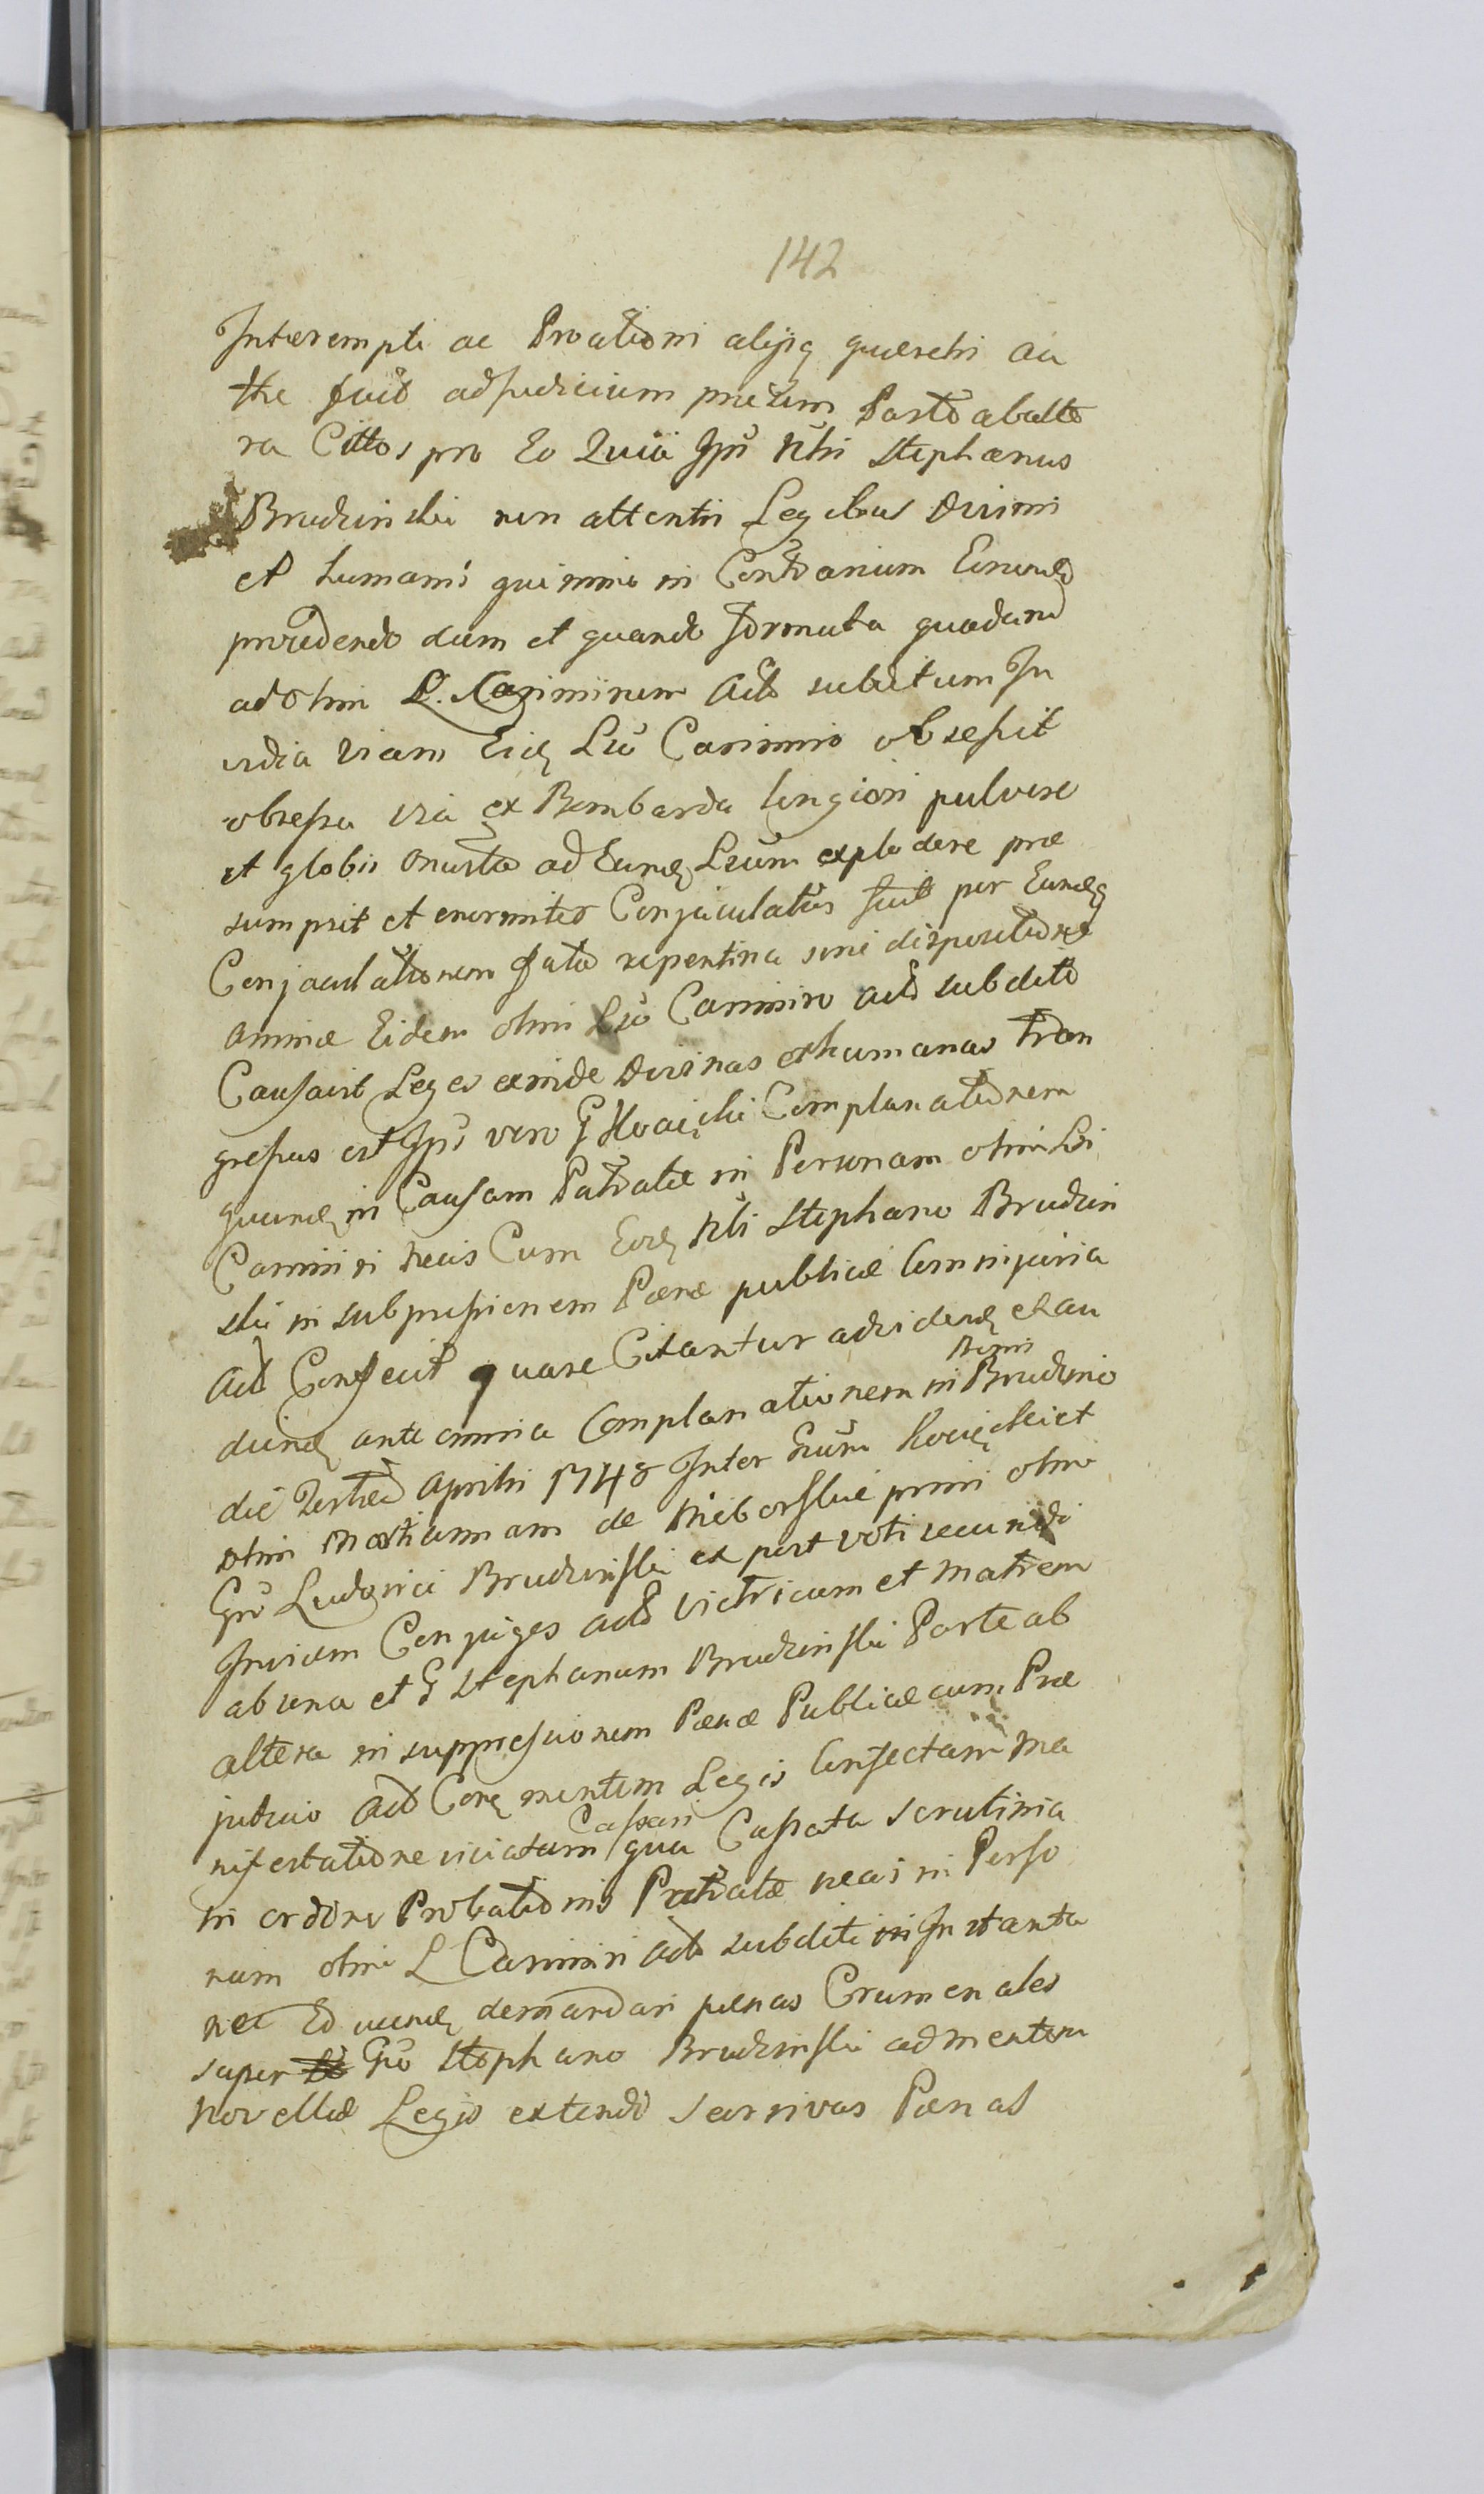 142
Interempti ac Proationi alijsq querelis au
the fuit ad Judicium prium Parte ab alte
ra Cittos pro Eo Quia Ips Nlis Stephanus
Brudzinski non attentis Legibus Divinis
et humanis quinimo in Contrarium Earund
procedendo dum et quando formata quadam
ad olim L. Casimirum Act subditum In
vidia viam Eid Lso Casimiro obsepit
obsepta via ex Bombarda longiori pulvere
et globis onusta ad Eund Lsum explodere præ
sumpsit et enormiter Conjaculatus fuit per Eandq
Conjaculationem fata repentina sine dispositione
animæ Eidem olim Lso Casimiro Act subdito
Causavit Leges exinde Divinas et humanas tran
gressus est Ips vero G Kocięcki Complanationem
quand in Causam Patratæ in Personam olim Lsi
Casimiri necis Cum Eod Nli Stephano Brudzin
ski in subpressionem Pænæ publicæ Cum injuria
Act Confecit quare Citantur ad vidend et au
diend ante omnia Complanationem in Bonis Brudzino
die Tertia Aprilis 1748 Inter Gsum Kocięcki et
olim Mariannam de Nieborskie primi olim
Gsi Ludovici Brudzinski ex post voti secundi
Invicem Conjuges Act Victricum et Matrem
ab una et G Stephanum Brudzinski Parte ab
altera in suppressionem Pænæ Publicæ cum Præ
judicio Act Cont mentem Legis Confectam Ma
nifestatione viciatam Cassari qua Cassata Scrutinia
in ordine Probationis Patratæ necis in Perso
nam olim L Casimiri Act subditi in Instanta
nee Educend demandari pænas Crumenales
super Gso Stephano Brudzinski ad mentem
novellæ Legis extendi Servivas Pænas